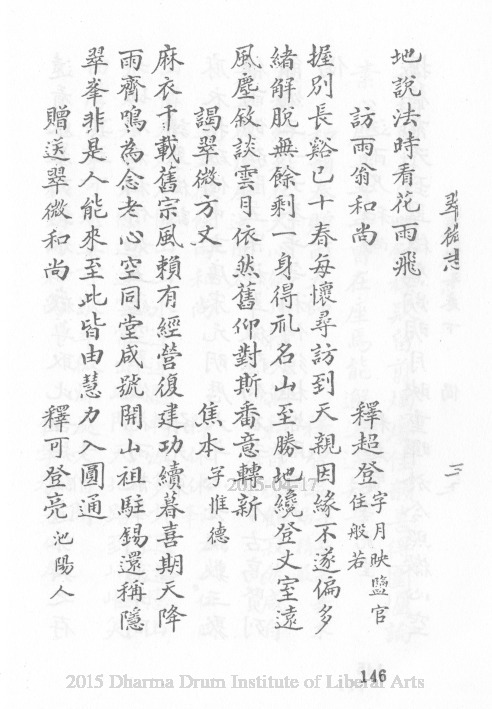 翠微志
三
地說法時看花雨飛
訪雨翁和尚 釋超登 字月映鹽官住般若
握別長谿已十春每懷尋訪到天親因緣不遂偏多
緒解脫無餘剩一身得禮名山至勝地纔登丈室遠
風塵敘談雲月依然舊仰對斯番意轉新
謁翠微方丈 焦本 字惟德
麻衣千載舊宗風賴有經營復建功續暮喜期天降
雨齊鳴為念老心空同堂咸號開山祖駐錫還稱隱
翠峯非是人能來至此皆由慧力入圓通
贈送翠微和尚 釋可登亮 池陽人
146
2015-04-17
2015 Dharma Drum Institute of Liberal Arts